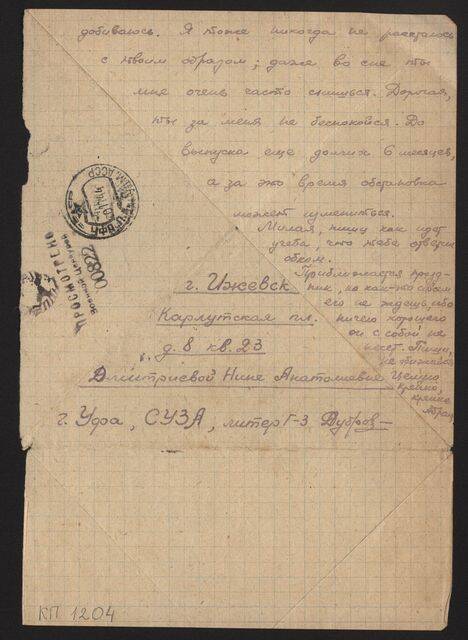 добиваюсь. Я тоже никогда не расстаюсь
с твоим образом; даже во сне ты
мне очень часто снишься. Дорогая,
ты за меня не беспокойся. До
выпуска еще долгих 6 месяцев,
а за это время обстановка
может измениться.
Милая, пиши как идет
учеба, что тебе ответил
обком.
Приближается празд-
ник, но как-то совсем
его не ждешь, ибо
ничего хорошего
он с собой не
несет. Пиши,
не
Целую
крепко,
крепко
г. Ижевск
Карлутская пл.
д. 8 кв. 23
Дмитриевой Нине Анатольевне
г. Уфа, СУЗА, литер Г-3, Дубров
УДМ. АССР
ПРОСМОТРЕНО
Военной Цензурой
00822
КП 1204